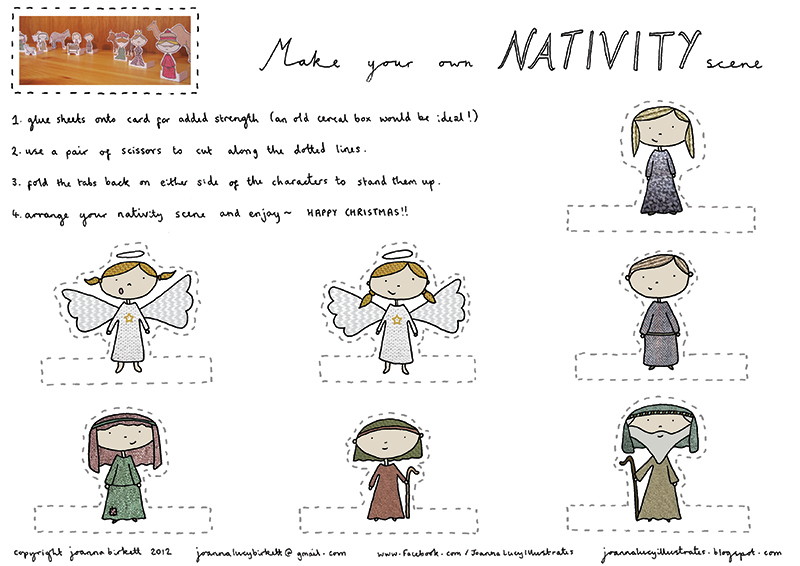 Make your own NATIVITY scene
1. glue sheets onto card for added strength (an old cereal box would be ideal!)
2. use a pair of scissors to cut along the dotted lines.
3. fold the tabs back on either side of the characters to stand them up.
4. arrange your nativity scene and enjoy~ HAPPY CHRISTMAS!!
copyright joanna birkett 2012 joannalucybirkett@gmail.com www.facebook.com/JoannaLucyIllustrates joannalucyillustrates.blogspot.com